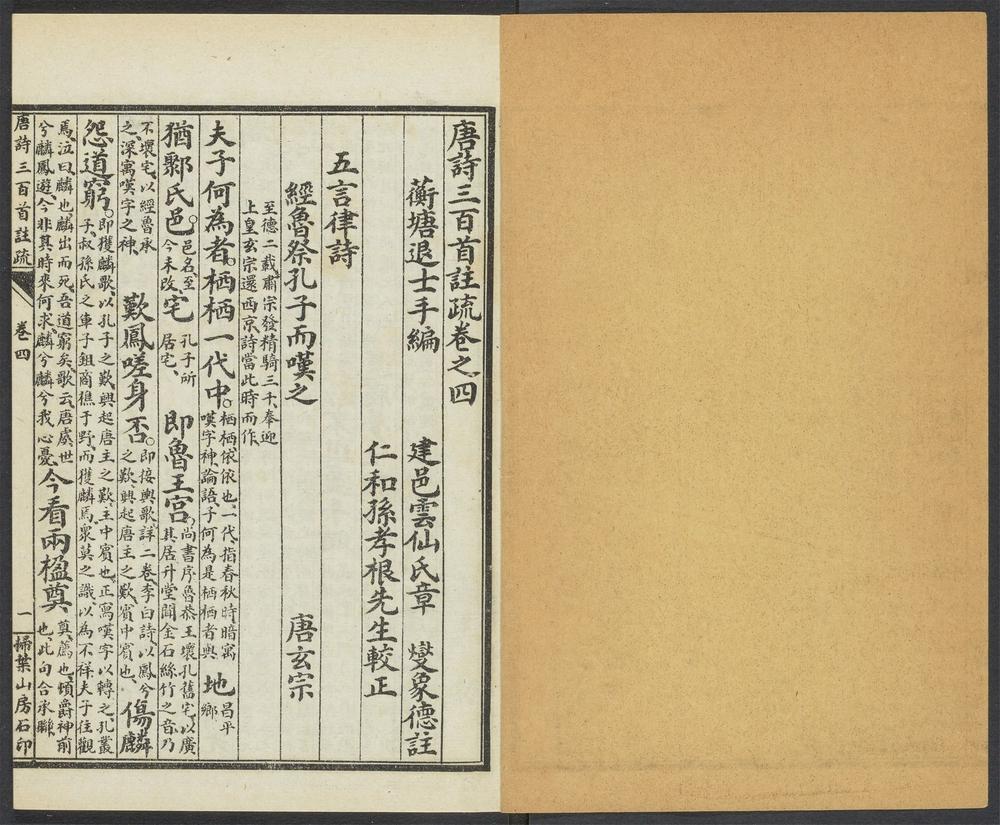 唐詩三百首註疏卷之四
蘅塘退士手編 建邑雲仙氏章 燮象德註
仁和孫孝根先生較正
五言律詩
經魯祭孔子而嘆之 唐玄宗
至德二載肅宗發精騎三千奉迎
上皇玄宗還西京詩當此時而作
夫子何為者栖栖一代中栖栖依依也一代指春秋時暗寓
嘆字神論語子何為是栖栖者與地昌平
鄉
猶鄹氏邑邑名至
今未改宅孔子所
居宅即魯王宮尚書序魯恭王壞孔舊宅以廣
其居升堂聞金石絲竹之音乃
不壞宅以經魯承
之深寓嘆字之神歎鳳嗟身否即接輿歌詳二卷李白詩以鳳兮
之歎興起唐主之歎賓中賓也傷麟
怨道窮即獲麟歌以孔子之歎興起唐主之歎主中賓也正寫嘆字以轉之孔叢
子叔孫氏之車子鉏商樵于野而獲麟焉眾莫之識以為不祥夫子往觀
焉泣曰麟也麟出而死吾道窮矣歌云唐虞世
兮麟鳳遊今非其時來何求麟兮麟兮我心憂今看兩楹奠奠薦也頓爵神前
也此句合承聯
唐詩三百首註疏 卷四 一 掃葉山房石印